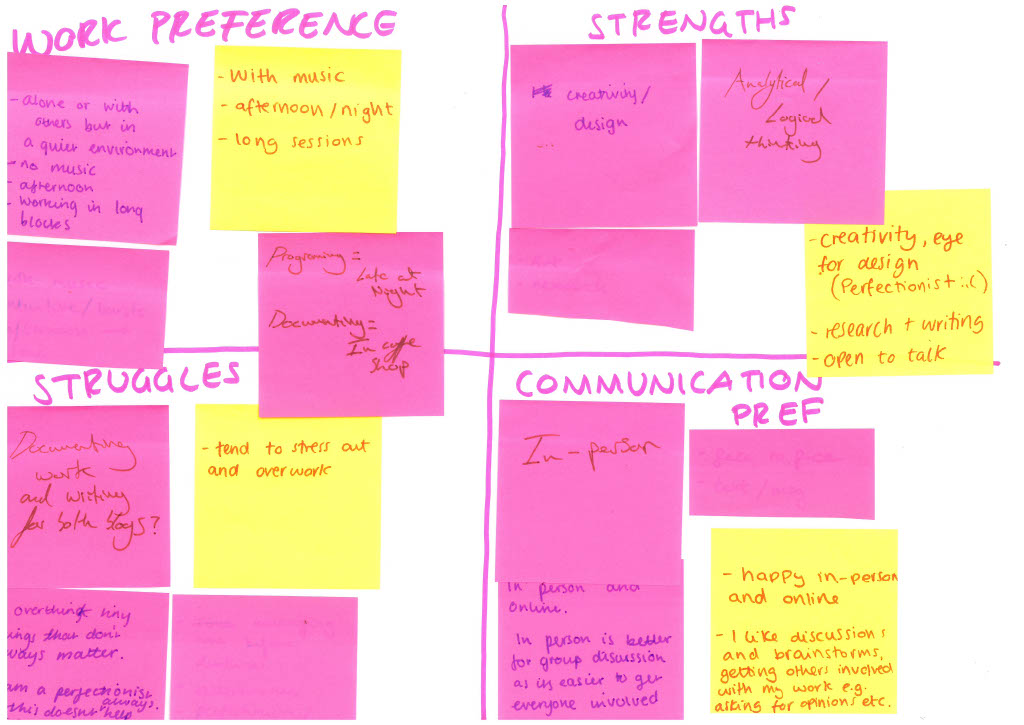 WORK PREFERENCE
- alone or with
others but in
a quiet environment
- no music
- afternoon
- working in long
blocks
- With music
- afternoon/night
- long sessions
music
/ bursts
Programing =
Late at
Night
Documenting =
In coffe
Shop
STRENGTHS
creativity/
design
...
Analytical /
Logical
thinking
- creativity, eye
for design
(Perfectionist :.()
- research + writing
- open to talk
STRUGGLES
Documenting
work
and writing
for both blogs?
- tend to stress out
and overwork
overthink tiny
ings that don't
ways matter.
am a perfectionist
this doesn't always help
COMMUNICATION
PREF
In-person
- face to face
- text / msg
In person and
online.
In person is better
for group discussion
as its easier to get
everyone involved
- happy in-person
and online
- I like discussions
and brainstorms,
getting others involved
with my work e.g.
asking for opinions etc.